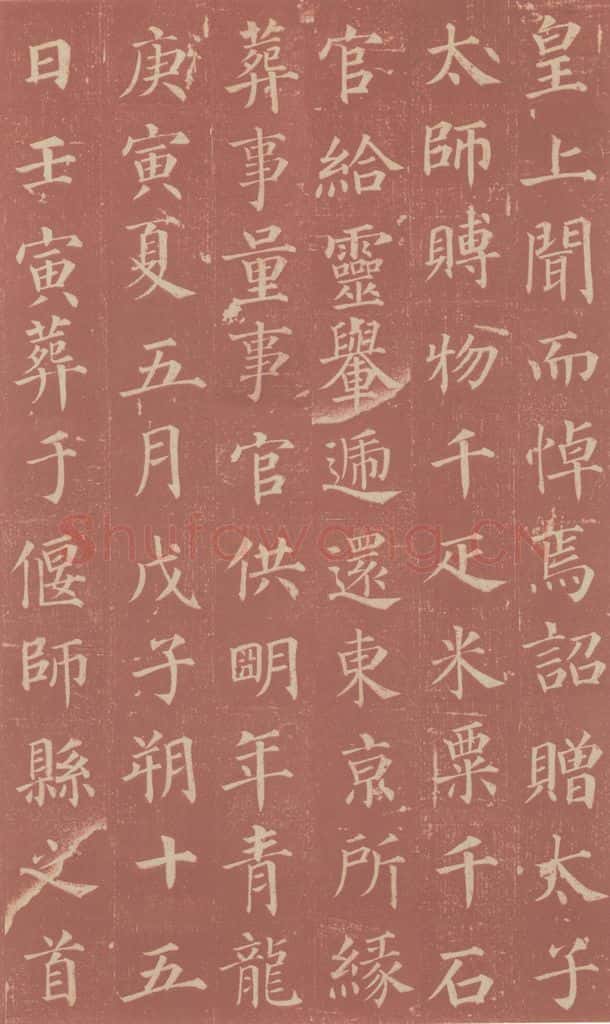 皇上聞而悼焉詔贈太子
太師賻物千疋米粟千石
官給靈轝遞還東京所緣
葬事量事官供朙年青龍
庚寅夏五月戊子朔十五
日壬寅葬于偃師縣之首
Shufawang.CN